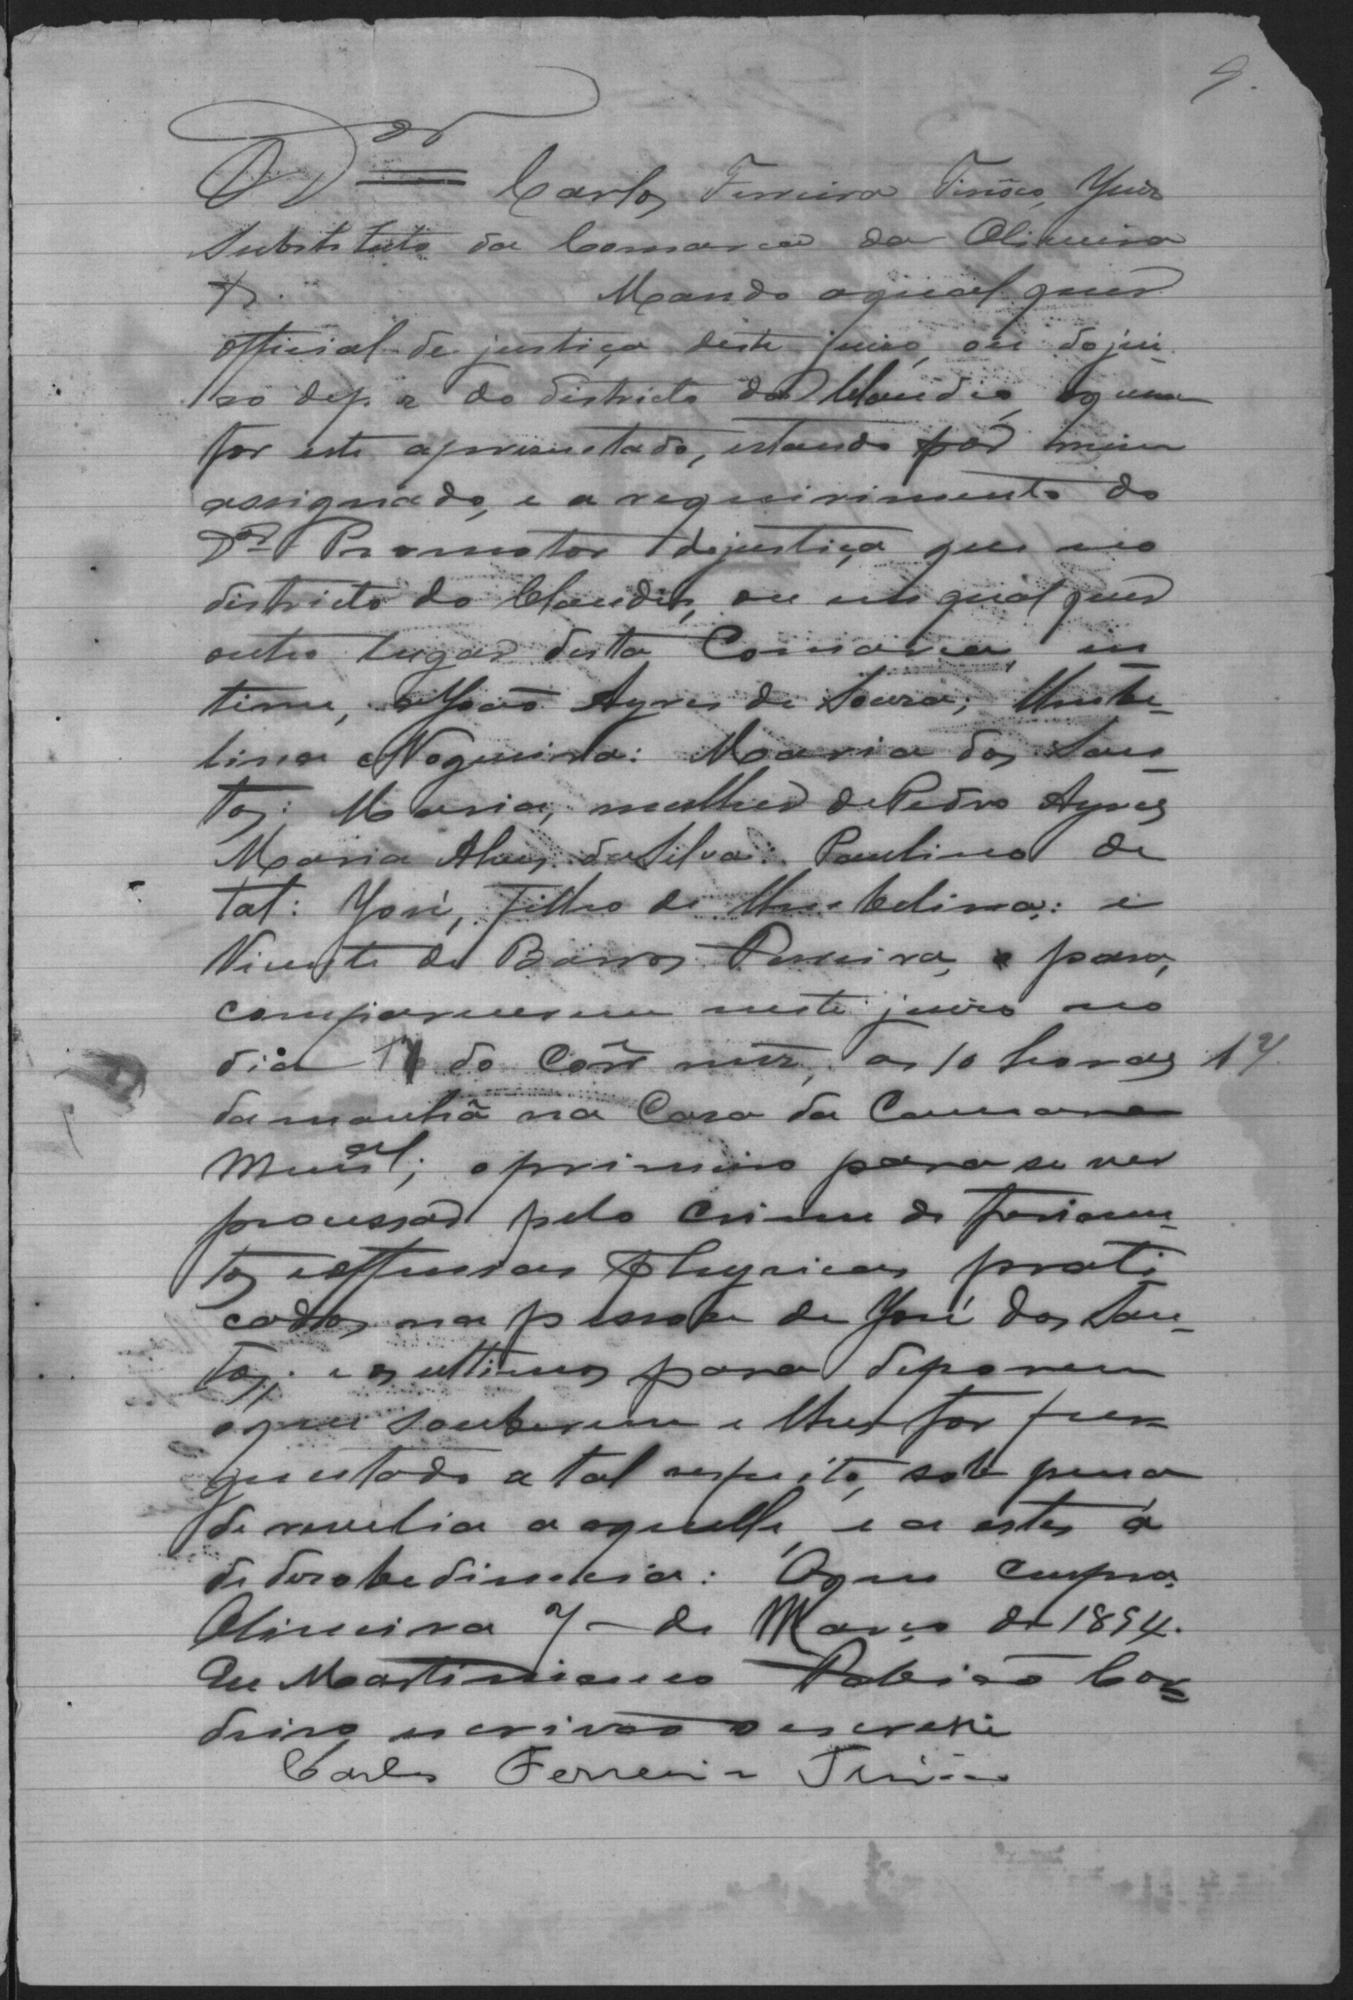 9.
O Dor Carlos Ferreira Tinôco, Juiz
Substituto da Comarca da Oliveira
&. Mando aqualquer
official de justiça deste juizo, ou do jui-
zo de paz do districto do Claudio, aquem
for este apresentado, estando por mim
assignado, e a requirimento do
Dor Promotor dejustiça que no
districto do Claudio, ou em qualquer
outro lugar desta Comarca, in-
time, a João Ayres de Souza; Umbe-
lina Nogueira: Maria dos San-
tos: Maria, mulher de Pedro Ayres
Maria Alves da Silva: Paulino de
tal: José, filho de Umbelina: e
Vicente de Barros Pereira, para,
comparecerem neste juizo no
dia do Corre mez, as 10 horas 17
damanhã na Casa da Camara
Munal; oprimeiro para se ver
processar pelo crime de ferimen-
tos e offensas Phyzicas prati
cados na pessoa de José dos San-
tos; e os ultimos para deporem
oque souberem e lhes for per
guntado a tal respeito, sob pena
de revelia a aquelle, e a estes á
de desobediencia: Oque cumpra.
Oliveira 7 de Março de 1894.
Eu Martiniano Cor-
deiro escrivão o escrevi
Carlos Ferreira Tinôco